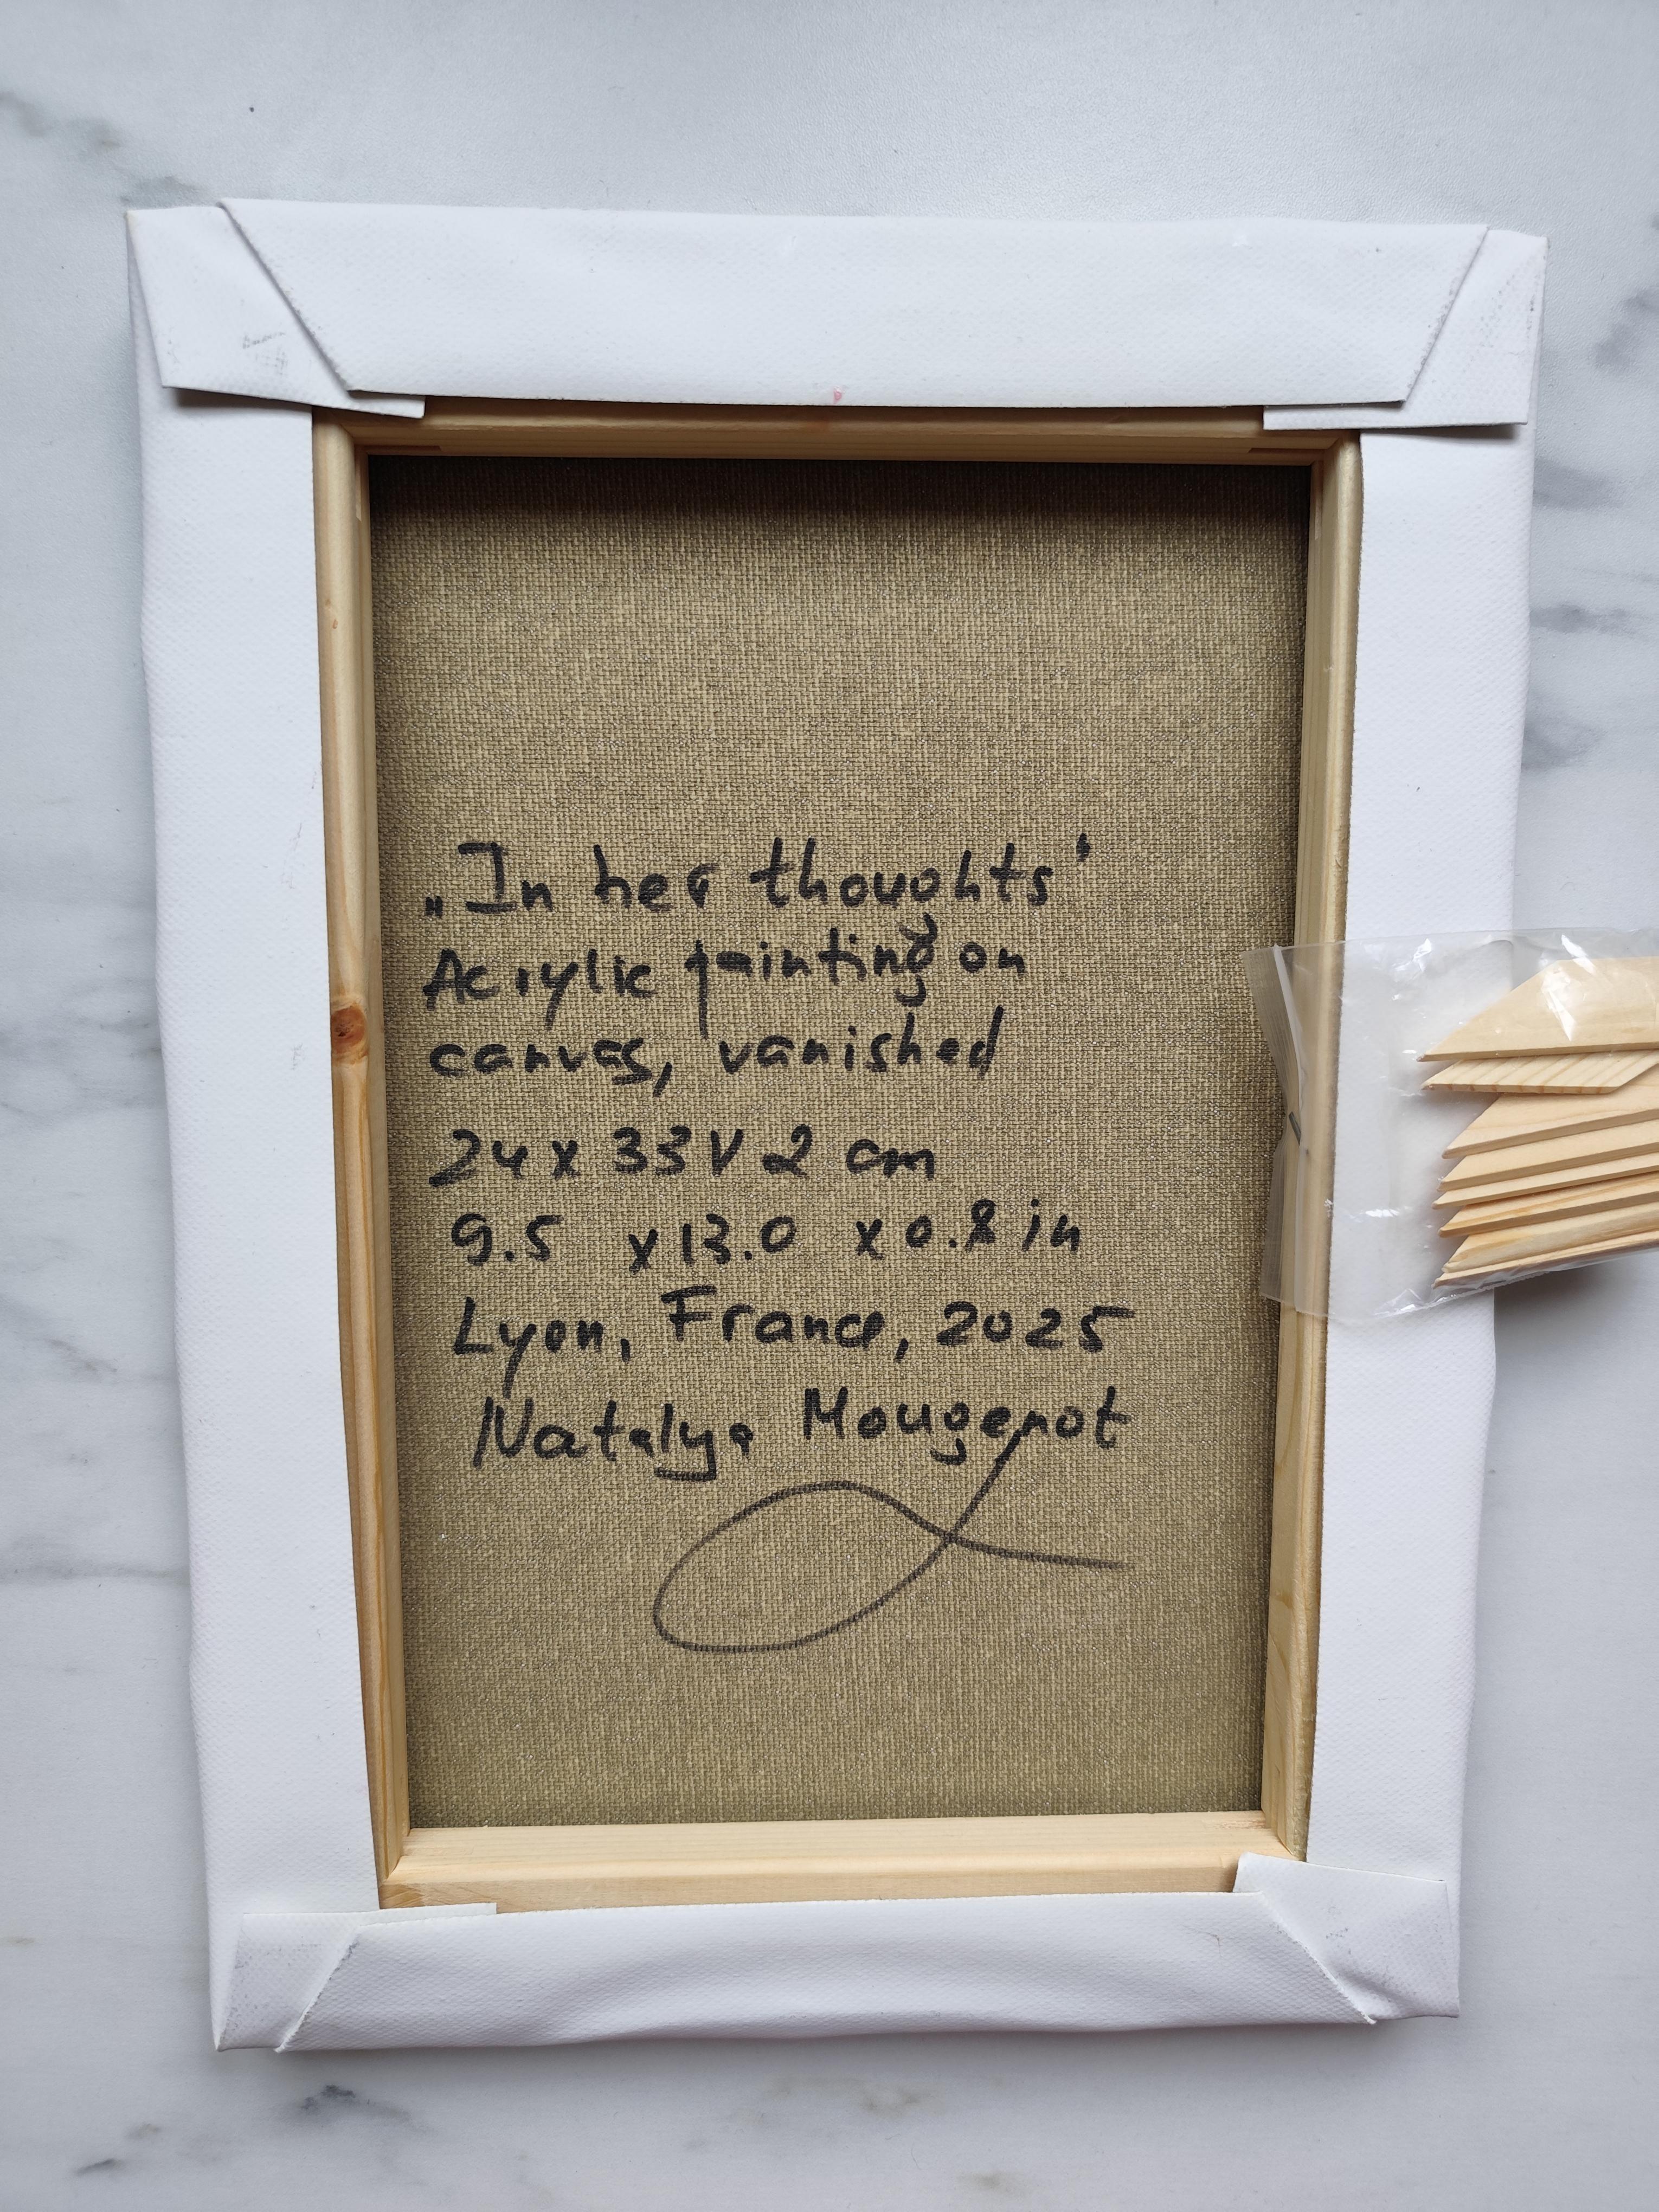 „In her thoughts"
Acrylic painting on
canvas, vanished
24 x 33 x 2 cm
9.5 x 13.0 x 0.8 in
Lyon, France, 2025
Natalya Mougenot